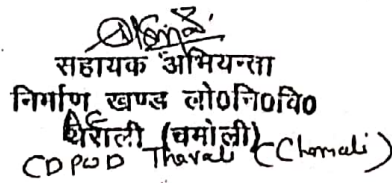 सहायक अभियन्ता
निर्माण खण्ड लो०नि०वि०
थराली (चमोली)
CDPWD Tharali (Chamoli)